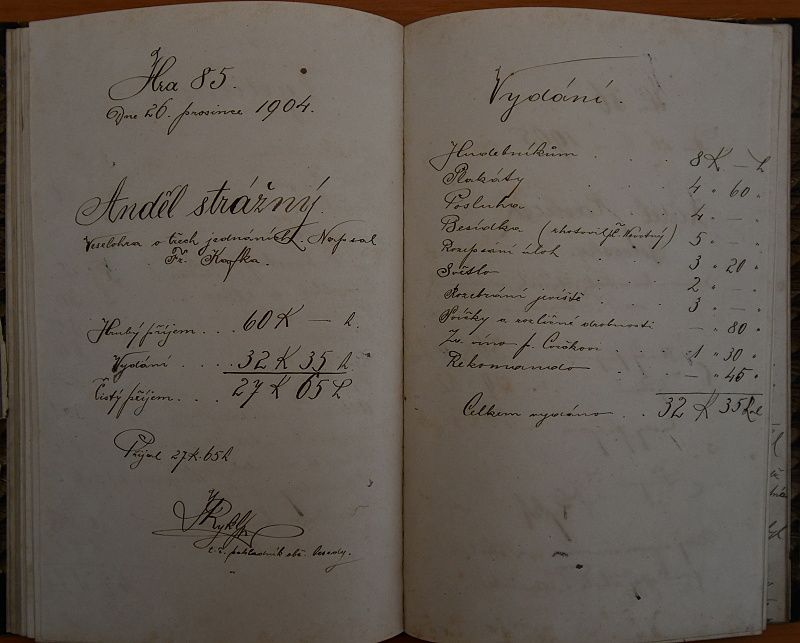 Hra 85.
Dne 26. prosince 1904.
Anděl strážný.
Veselohra o třech jednáních. Napsal
Fr. Kafka.
Hrubý příjem . . . 60 K — h.
Vydání . . . 32 K 35 h
Čistý příjem . . . 27 K 65 h
Přijal 27 K. 65 h
t. č. pokladník obč. besedy.
Vydání.
Hudebníkům . . . 8 K — h
Plakáty . . . 4 " 60 "
Posluha . . . 4 " — "
Besídka (zhotovil p. Novotný) 5 " — "
Rozepsání úloh . . . 3 " 20 "
Světlo . . . 2 " — "
Rozebrání jeviště . . . 3 " — "
Svíčky a rozličné drobnosti — " 80 "
Za víno p. . . . 1 " 30 "
Rekomando . . . — " 45 "
Celkem vydáno . . 32 K 35 h